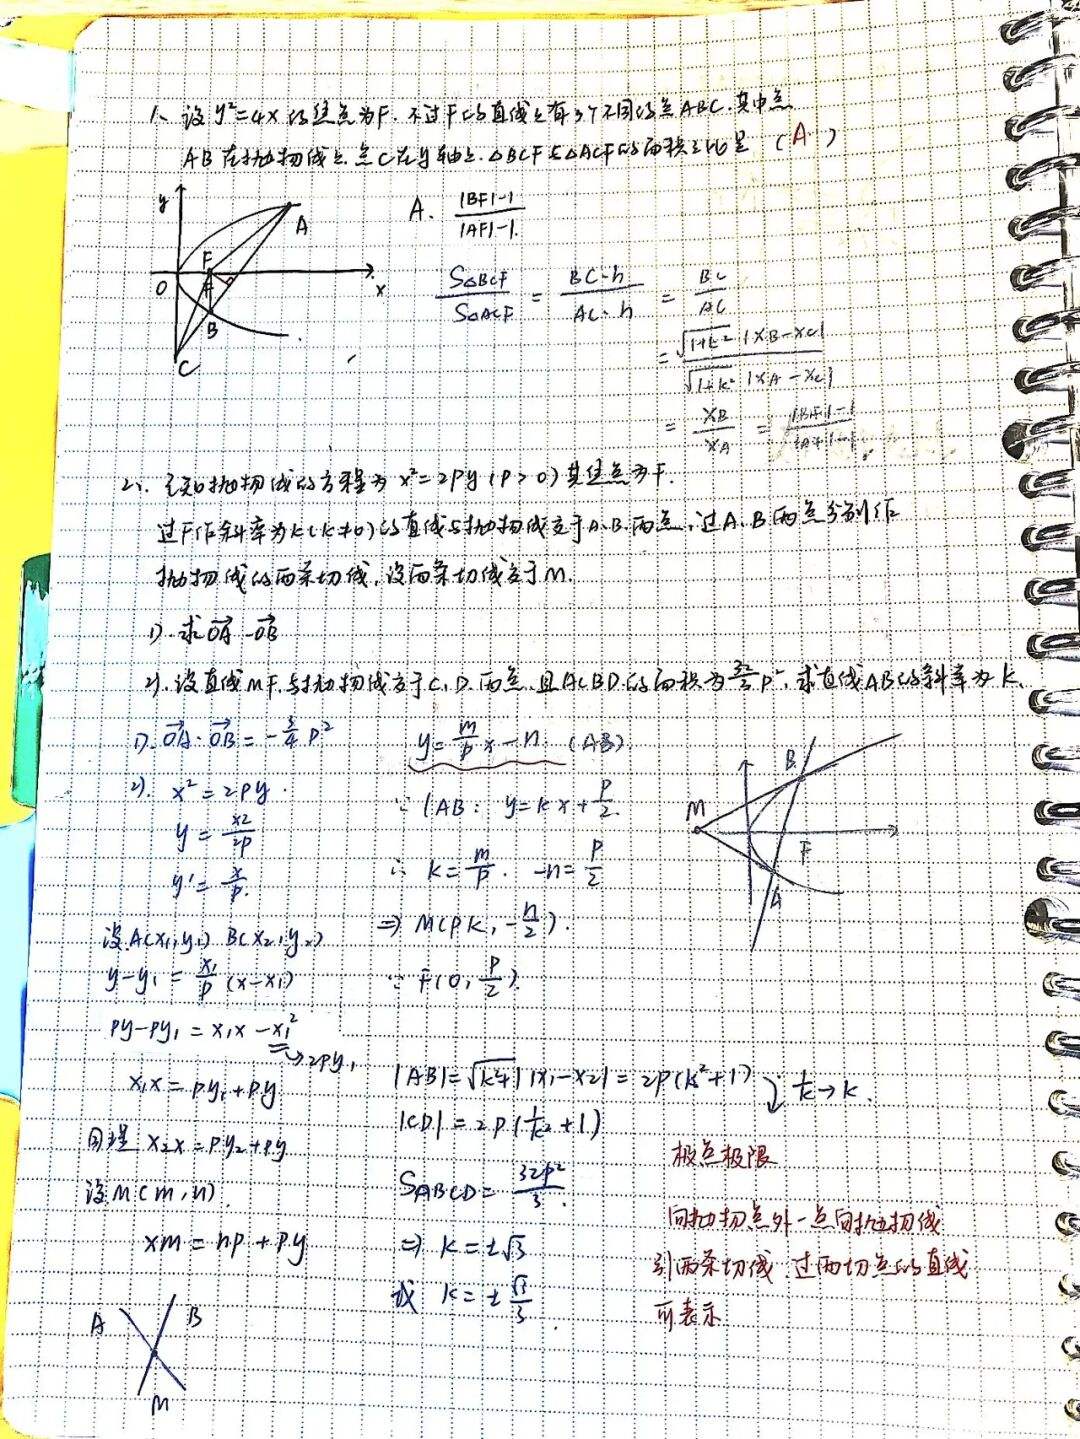 1、设y²=4x的焦点为F.不过F的直线上有3个不同的点ABC.其中点
AB在抛物线上.点C在y轴上.△BCF与△ACF的面积之比是 (A)
y
A
F
O
x
B
C
A. |BF|-1 / |AF|-1.
S△BCF / S△ACF = BC·h / AC·h = BC / AC
= √1+k² |xB-xC| / √1+k² |xA-xC|
= xB / xA = |BF|-1 / |AF|-1
2、已知抛物线的方程为x²=2py(p>0)其焦点为F.
过F作斜率为k(k≠0)的直线与抛物线交于A.B.两点,过A.B两点分别作
抛物线的两条切线,设两条切线交于M.
1).求OA·OB
2).设直线MF.与抛物线交于C.D.两点.且ACBD的面积为 p²,求直线AB的斜率为k.
1).OA·OB=-3/4 p²
2). x²=2py.
y=x²/2p
y'=x/p.
设A(x₁,y₁) B(x₂,y₂)
y-y₁=x₁/p (x-x₁)
py-py₁=x₁x-x₁²
→2py₁
x₁x=py₁+py
同理 x₂x=py₂+py
设M(m,n)
xm=np+py
A
B
M
y=m/p x-n (AB)
∵ lAB: y=kx+p/2.
∴ k=m/p. -n=p/2
⇒M(pk,-n/2).
∵ F(0,p/2).
|AB|=√k²+1|x₁-x₂|=2p(k²+1)
1/k→k.
|CD|=2p(1/k²+1)
SABCD=32p²/3.
⇒ k=±√3
或 k=±√3/3.
B
M
F
A
极点极限
向抛物点外一点向抛物线
引两条切线.过两切点的直线
可表示